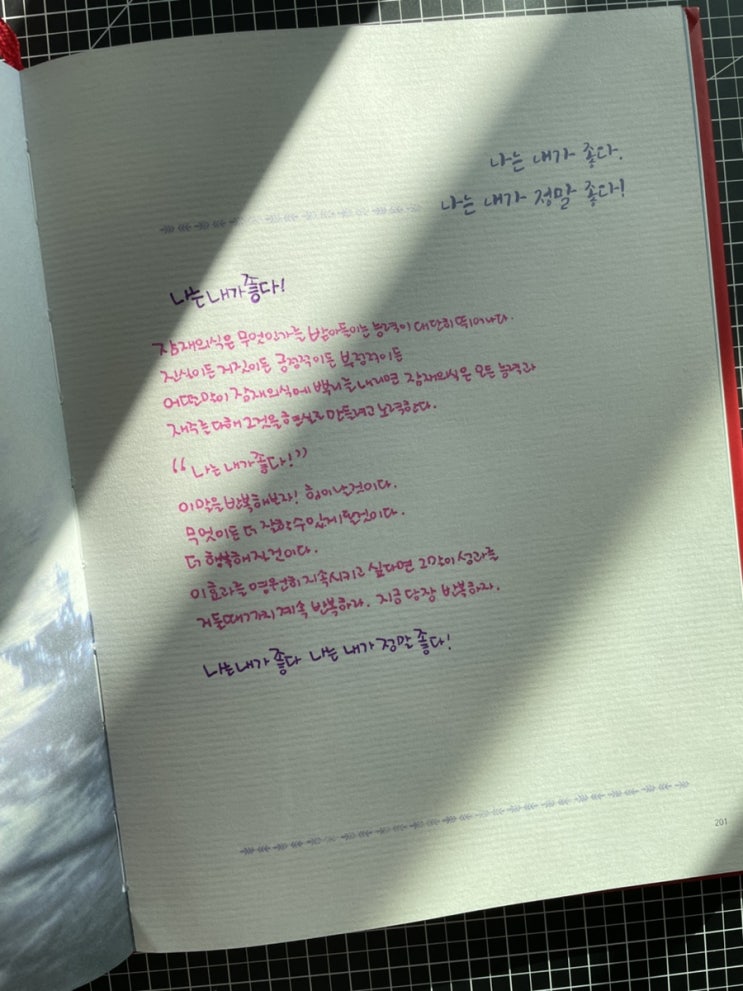 나는 내가 좋다.
나는 내가 정말 좋다!
나는 내가 좋다!
잠재의식은 무엇인가를 받아들이는 능력이 대단히 뛰어나다.
진실이든 거짓이든 긍정적이든 부정적이든
어떤 말이 잠재의식에 뿌리를 내리면 잠재의식은 모든 능력과
재주를 다해 그것을 현실로 만들려고 노력한다.
"나는 내가 좋다!"
이 말을 반복해보자! 힘이 날 것이다.
무엇이든 더 잘할 수 있게 될 것이다.
더 행복해질 것이다.
이 효과를 영원히 지속시키고 싶다면 그 말이 성과를
거둘 때까지 계속 반복하라. 지금 당장 반복하자.
나는 내가 좋다 나는 내가 정말 좋다!
201